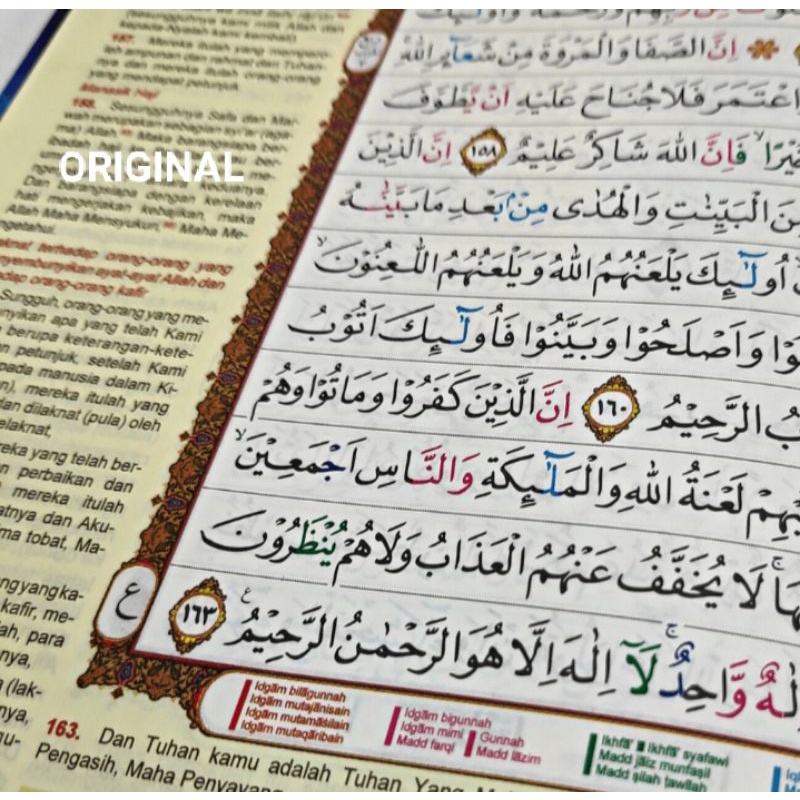 kepada-Nyalah kami kembali).
157. Mereka itulah yang memper-
leh ampunan dan rahmat dari Tuhan-
nya dan mereka itulah orang-orang
yang mendapat petunjuk.
Manasik Haji
158. Sesungguhnya Safa dan Mar-
wah merupakan sebagian syi'ar (aga-
ma) Allah.
ORIGINAL
keduanya.
Dan barangsiapa dengan kerelaan
hati mengerjakan kebajikan, maka
Allah Maha Mensyukuri, Maha Me-
ngetahui.
terhadap orang-orang yang
nyembunyikan ayat-ayat Allah dan
orang-orang kafir
Sungguh, orang-orang yang me-
nyikan apa yang telah Kami
berupa keterangan-kete-
petunjuk, setelah Kami
pada manusia dalam Ki-
mereka itulah yang
dan dilaknat (pula) oleh
elaknat,
reka yang telah ber-
n perbaikan dan
mereka itulah
atnya dan Aku-
ma tobat, Ma-
ng yang ka-
kafir, me-
ah, para
nya,
(lak-
nya,
اِنَّ الصَّفَا وَالْمَرْوَةَ مِنْ شَعَاۤىِٕرِ اللّٰهِ
اعْتَمَرَ فَلَا جُنَاحَ عَلَيْهِ اَنْ يَّطَّوَّفَ
خَيْرًاۙ فَاِنَّ اللّٰهَ شَاكِرٌ عَلِيْمٌ ١٥٨ اِنَّ الَّذِيْنَ
مِنَ الْبَيِّنٰتِ وَالْهُدٰى مِنْۢ بَعْدِ مَا بَيَّنّٰهُ
اُولٰۤىِٕكَ يَلْعَنُهُمُ اللّٰهُ وَيَلْعَنُهُمُ اللّٰعِنُوْنَۙ
وَاَصْلَحُوْا وَبَيَّنُوْا فَاُولٰۤىِٕكَ اَتُوْبُ
الرَّحِيْمُ ١٦٠ اِنَّ الَّذِيْنَ كَفَرُوْا وَمَاتُوْا وَهُمْ
لَعْنَةُ اللّٰهِ وَالْمَلٰۤىِٕكَةِ وَالنَّاسِ اَجْمَعِيْنَۙ
لَا يُخَفَّفُ عَنْهُمُ الْعَذَابُ وَلَا هُمْ يُنْظَرُوْنَ
اِلٰهٌ وَّاحِدٌۚ لَآ اِلٰهَ اِلَّا هُوَ الرَّحْمٰنُ الرَّحِيْمُ ࣖ ١٦٣
ع
Idgām bilāgunnah
Idgām mutajānisain
Idgām mutamāsilain
Idgām mutaqāribain
Idgām bigunnah
Idgām mimi
Madd farqi
Gunnah
Madd lāzim
Ikhfā'
Ikhfā' syafawi
Madd jāiz munfaṣil
Madd ṣilah ṭawīlah
163. Dan Tuhan kamu adalah Tuhan Yang
Pengasih, Maha Penyayang